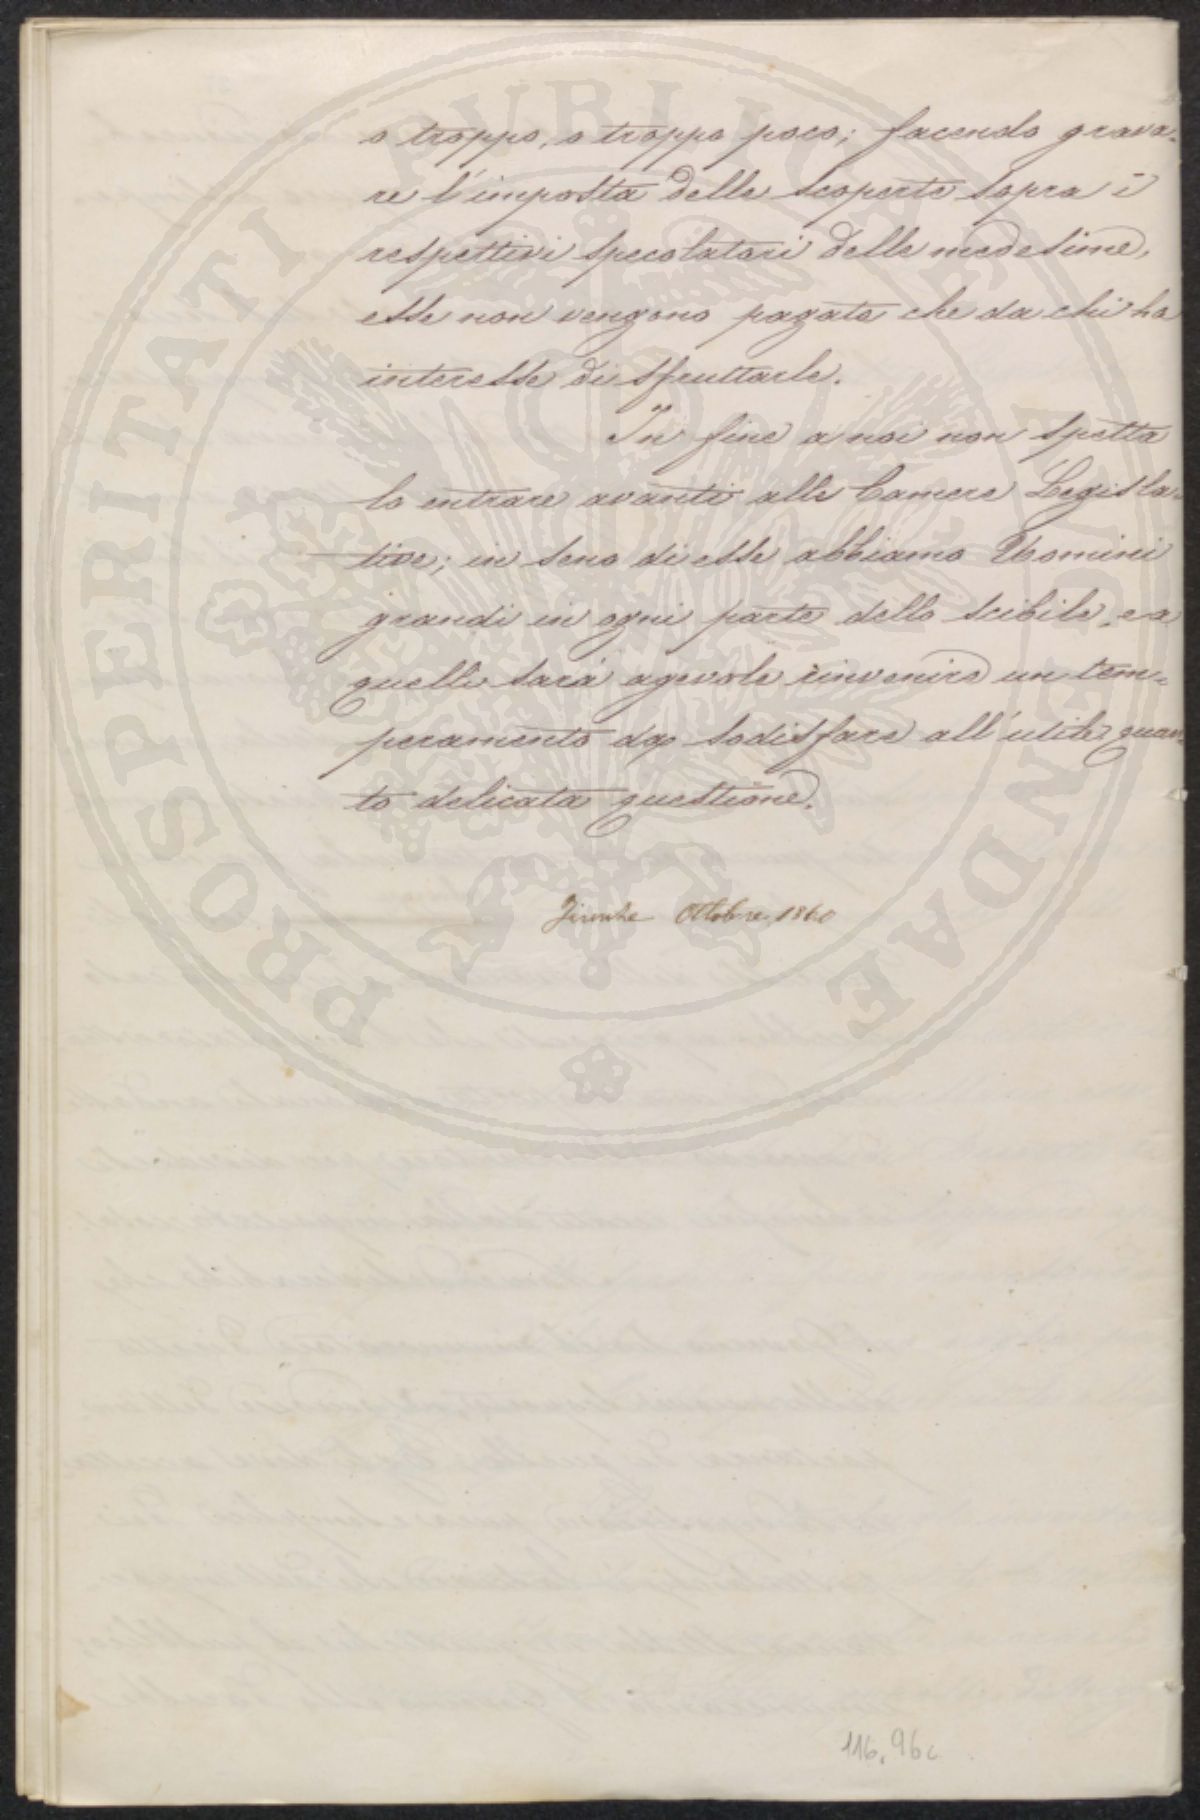 o troppo, o troppo poco; facendo grava-
re l'imposta delle scoperte sopra i
respettivi specolatori delle medesime,
esse non vengono pagate che da chi ha
interesse di sfruttarle.
In fine a noi non spetta
lo entrare avanti alle Camere Legisla-
tive; in seno di esse abbiamo Uomini
grandi in ogni parte dello scibile, e a
quelli sarà agevole rinvenire un tem-
peramento da sodisfare all'utile quan-
to delicata questione.
Firenze Ottobre 1860
116.96c
PROSPERITATI PUBLICAE AUGENDAE